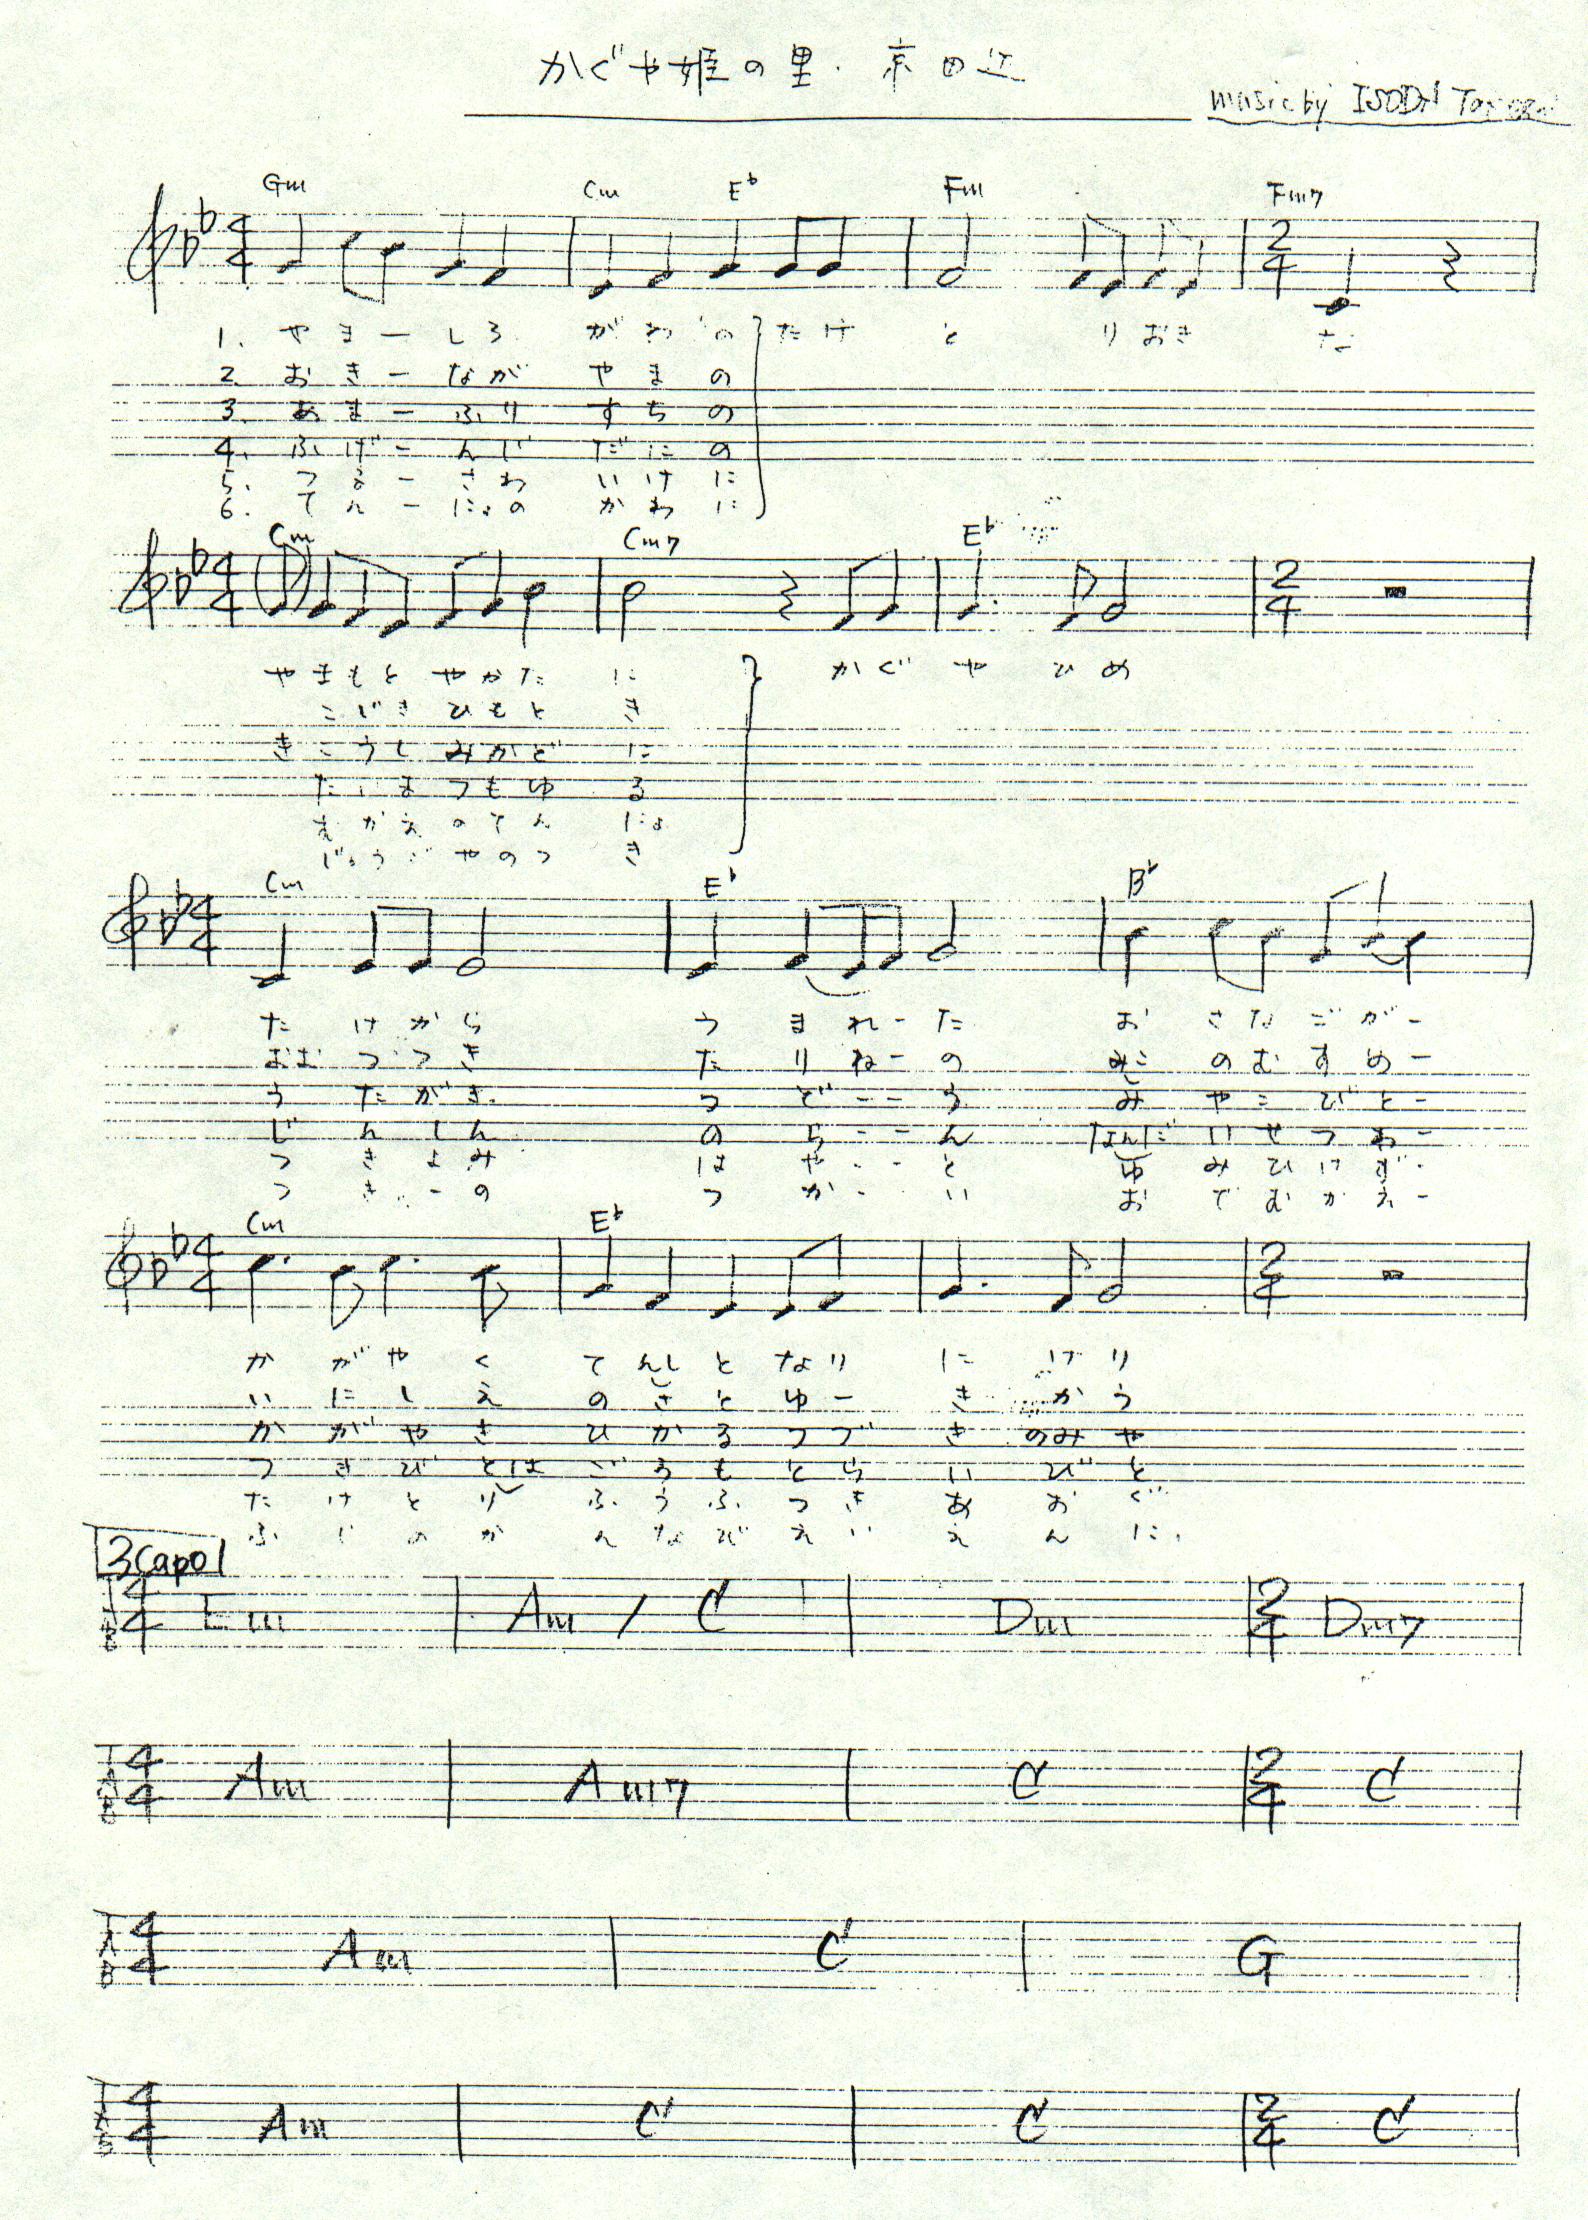 かぐや姫の里・京田辺
music by ISODA
Gm Cm E♭ Fm Fm7
4/4 2/4
1. やまーしろ がわの たけとりおきな
2. おきーなが やまの
3. あまーふり すちの
4. ふげーんじ だにの
5. つえーさわ いけに
6. てんーにょの かわに
Cm Cm7 E♭
4/4 2/4
やまもとやかたに かぐやひめ
こじきひもとき
きこうしみかどに
たいまつもゆる
むかえのてんにょ
じゅうごやのつき
Cm E♭ B♭
4/4
たけから うまれーた おさなごがー
おおつつき たりねーの みこのむすめー
うたがき つどーーう みやこびとー
じんしん のらーーん なんだいせつわー
つきよみ はやーーと ゆみひけずー
つきーの つかーい おでむかえー
Cm E♭
4/4 2/4
かがやく てんしとなり にけり
いにしえ のさとゆー きかう
かがやき ひかるつづ きのみや
つきびとは ごろもとら いびと
たけとり ふうふつき あおぐ
ふじのか んなびえい えんに
3Capo
TAB 4/4 Em Am / C Dm 2/4 Dm7
TAB 4/4 Am Am7 C 2/4 C
TAB 4/4 Am C G
TAB 4/4 Am C C 2/4 C